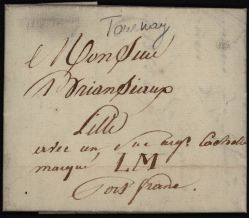 Tournay
a Monsieur
Briansiaux
Lille
avec un
marqué LM
Port franc.